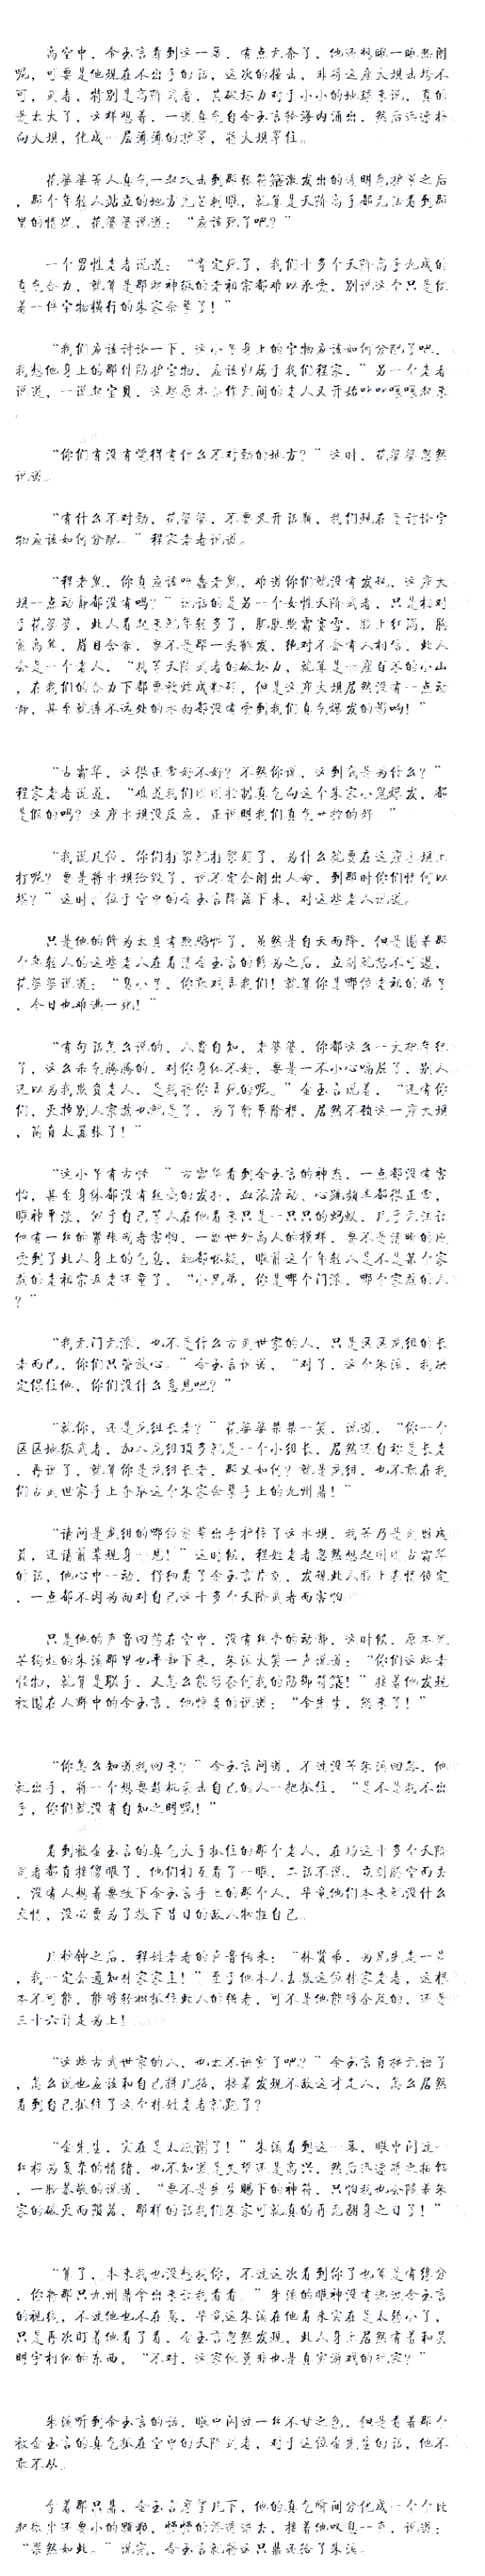 高空中，金玉言看到这一幕，有点无奈了，他还想瞧一瞧热闹
呢，可要是他现在不出手的话，这次的撞击，非将这座大坝击垮不
可，武者，特别是高阶武者，其破坏力对于小小的地球来说，真的
是太大了。这样想着，一道真气自金玉言轮海内涌出，然后迅速扑
向大坝，化成一层薄薄的护罩，将大坝罩住。
花婆婆等人真气一起攻击到那张符箓激发出的透明色护罩之后
，那个年轻人站立的地方光芒刺眼，就算是天阶高手都无法看到那
里的情况，花婆婆说道：“应该死了吧？”
一个男性老者说道：“肯定死了，我们十多个天阶高手完成的
真气合力，就算是那些神级的老祖宗都难以承受，别说这个只是仗
着一件宝物横行的朱家余孽了！”
“我们应该讨论一下，这小子身上的宝物应该如何分配了吧，
我想他身上的那件防护宝物，应该归属于我们程家。”另一个老者
说道，一说起宝贝，这些原本合作无间的老人又开始吵吵嚷嚷起来
。
“你们有没有觉得有什么不对劲的地方？”这时，花婆婆忽然
说道。
“有什么不对劲，花婆婆，不要叉开话题，我们现在是讨论宝
物应该如何分配。”程家老者说道。
“程老鬼，你真应该叫蠢老鬼，难道你们就没有发现，这座大
坝一点动静都没有吗？”说话的是另一个女性天阶武者，只是相对
于花婆婆，此人看起来就年轻多了，肌肤欺霜赛雪，脸上红润，胸
宽高耸，眉目含春，要不是那一头银发，绝对不会有人相信，此人
会是一个老人，“我等天阶武者的破坏力，就算是一座百米的小山
，在我们的合力下都要被炸成粉碎，但是这座大坝居然没有一点动
静，甚至就连不远处的水面都没有受到我们真气爆发的影响！”
“古霜华，这很正常好不好？不然你说，这到底是为什么？”
程家老者说道，“难道我们刚刚控制真气向这个朱家小鬼爆发，都
是假的吗？这座水坝没反应，正说明我们真气收放的好。”
“我说几位，你们打架就打架好了，为什么就要在这座水坝上
打呢？要是将水坝给毁了，说不定会闹出人命，到那时你们情何以
堪？”这时，位于空中的金玉言降落下来，对这些老人说道。
只是他的修为太具有欺骗性了，虽然是自天而降，但是围着那
个年轻人的这些老人在看清金玉言的修为之后，立刻就怒不可遏，
花婆婆说道：“臭小子，你敢戏弄我们！就算你是哪位老祖的弟子
，今日也难逃一死！”
“有句话怎么说的，人贵自知，老婆婆，你都这么一大把年纪
了，这么杀气腾腾的，对你身体不好，要是一不小心嗝屁了，别人
还以为我欺负老人，是我将你弄死的呢。”金玉言说着，“还有你
们，灭掉别人家族也就是了，为了斩草除根，居然不顾这一座大坝
，简直太嚣张了！”
“这小子有古怪。”古霜华看到金玉言的神态，一点都没有害
怕，甚至身体都没有丝毫的发抖，血液流动、心跳频率都很正常，
眼神平淡，似乎自己等人在他看来只是一只只的蚂蚁，几乎无法让
他有一丝的紧张或者害怕，一副世外高人的模样，要不是清晰的感
受到了此人身上的气息，她都怀疑，眼前这个年轻人是不是某个家
族的老祖宗返老还童了，“小兄弟，你是哪个门派、哪个家族的人
？”
“我无门无派，也不是什么古武世家的人，只是区区龙组的长
老而已，你们只管放心。”金玉言说道，“对了，这个朱溪，我决
定保住他，你们没什么意见吧？”
“就你，还是龙组长老？”花婆婆桀桀一笑，说道，“你一个
区区地级武者，加入龙组顶多就是一个小组长，居然还自称是长老
，再说了，就算你是龙组长老，那又如何？就是龙组，也不敢在我
们古武世家手上争夺这个朱家余孽手上的九州鼎！”
“请问是龙组的哪位前辈出手护住了这水坝，我等乃是武盟成
员，还请前辈现身一见！”这时候，程姓老者忽然想起刚刚古霜华
的话，他心中一动，仔细看了金玉言片刻，发现此人脸上表情镇定
，一点都不因为面对自己这十多个天阶武者而害怕。
只是他的声音回荡在空中，没有丝毫的动静。这时候，原本光
芒绚烂的朱溪那里也平静下来，朱溪大笑一声说道：“你们这些老
怪物，就算是联手，又怎么能够奈何我的防御符箓！”接着他发现
被围在人群中的金玉言，他惊喜的说道：“金先生，您来了！”
“你怎么知道我回来？”金玉言问道，不过没等朱溪回答，他
就出手，将一个想要趁机袭击自己的人一把抓住，“是不是我不出
手，你们就没有自知之明呢！”
看到被金玉言的真气大手抓住的那个老人，在场这十多个天阶
武者都直接傻眼了，他们相互看了一眼，二话不说，立刻腾空而去
，没有人想着要救下金玉言手上的那个人，毕竟他们本来就没什么
交情，没必要为了救下昔日的敌人牺牲自己。
几秒钟之后，程姓老者的声音传来：“林贤弟，为兄先走一步
，我一定会通知林家家主！”至于他本人去救这位林家老者，这根
本不可能，能够轻松抓住此人的强者，可不是他能够企及的，还是
三十六计走为上！
“这些古武世家的人，也太不讲究了吧？”金玉言直接无语了
，怎么说也应该和自己拼几招，接着发现不敌这才走人，怎么居然
看到自己抓住了这个林姓老者就跑了？
“金先生，实在是太感谢了！”朱溪看到这一幕，眼中闪过一
丝极为复杂的情绪，也不知道是失望还是高兴，然后迅速将之掩饰
，一脸恭敬的说道，“要不是先生赐下的神符，只怕我也会随着朱
家的破灭而陨落，那样的话我们朱家可就真的再无翻身之日了！”
“算了，本来我也没想救你，不过这次看到你了也算是有缘分
，你将那只九州鼎拿出来让我看看。”朱溪的眼神没有逃过金玉言
的视线，不过他也不在意，毕竟这朱溪在他看来实在是太弱小了，
只是再次盯着他看了看，金玉言忽然发现，此人身上居然有着和吴
明宇相似的东西，“不对，这家伙莫非也是真实游戏的玩家？”
朱溪听到金玉言的话，眼中闪过一丝不甘之色，但是看着那个
被金玉言的真气抓在空中的天阶武者，对于这位金先生的话，他不
敢不从。
拿着那只鼎，金玉言摩挲几下，他的真气瞬间分化成一个个比
和微尘还要小的颗粒，慢慢的渗透进去，接着他叹息一声，说道：
“果然如此。”说完，金玉言就将这只鼎还给了朱溪。